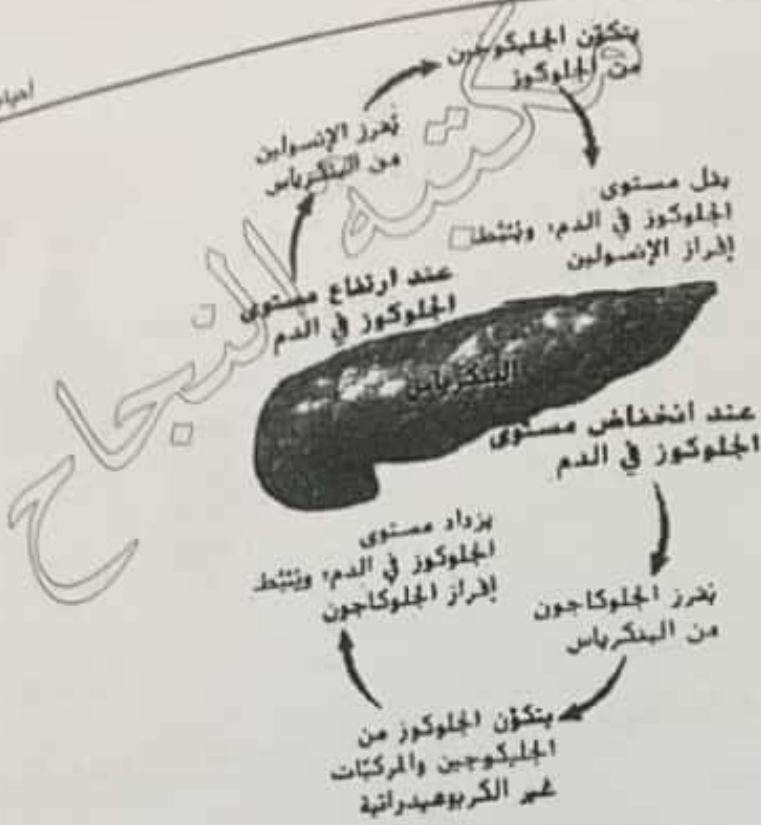 يتكوّن الجليكوجين
من الجلوكوز
يُفرز الإنسولين
من البنكرياس
يقل مستوى
الجلوكوز في الدم، ويُثبّط
إفراز الإنسولين
عند ارتفاع مستوى
الجلوكوز في الدم
البنكرياس
عند انخفاض مستوى
الجلوكوز في الدم
يزداد مستوى
الجلوكوز في الدم، ويُثبّط
إفراز الجلوكاجون
يُفرز الجلوكاجون
من البنكرياس
يتكوّن الجلوكوز من
الجليكوجين والمركبّات
غير الكربوهيدراتية
مكتبة النجاح